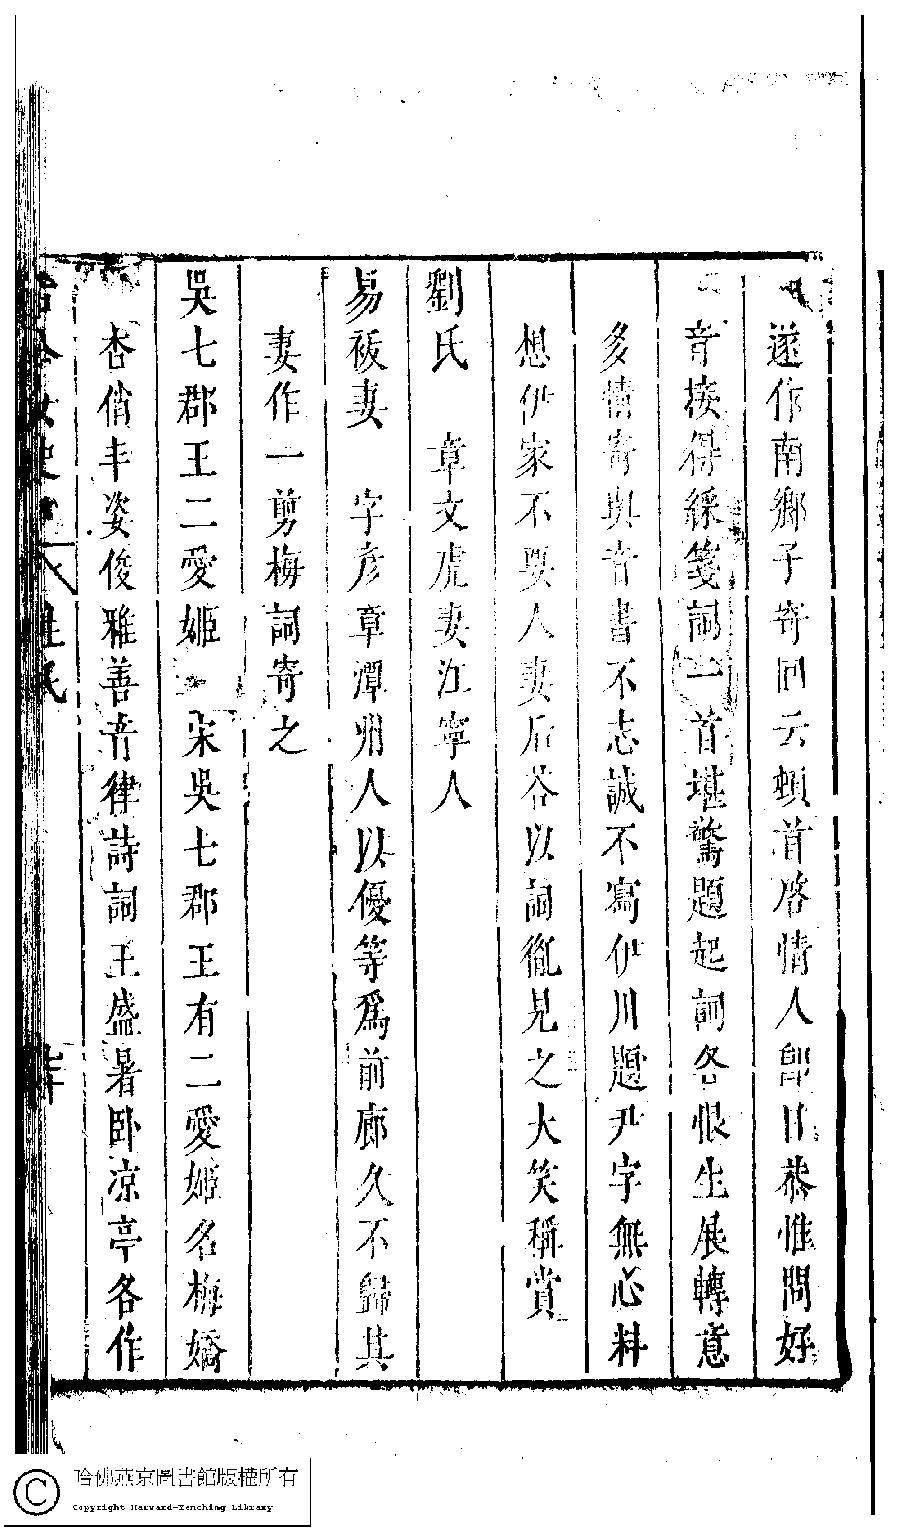 遂作南鄉子寄回云頓首啓情人卽日恭惟問好
音接得綵箋詞一首堪驚題起詞名恨生展轉意
多情寄與音書不志誠不寫伊川題尹字無心料
想伊家不要人妻后答以詞術見之大笑稱賞
劉氏 章文虎妻江寧人
易祓妻 字彥章潭州人以優等爲前廊久不歸其
妻作一剪梅詞寄之
吳七郡王二愛姬 宋吳七郡王有二愛姬名梅嬌
杏俏丰姿俊雅善音律詩詞王盛暑卧凉亭各作
古今女史 姓氏
哈佛燕京圖書館版權所有
Copyright Harvard-Yenching Library